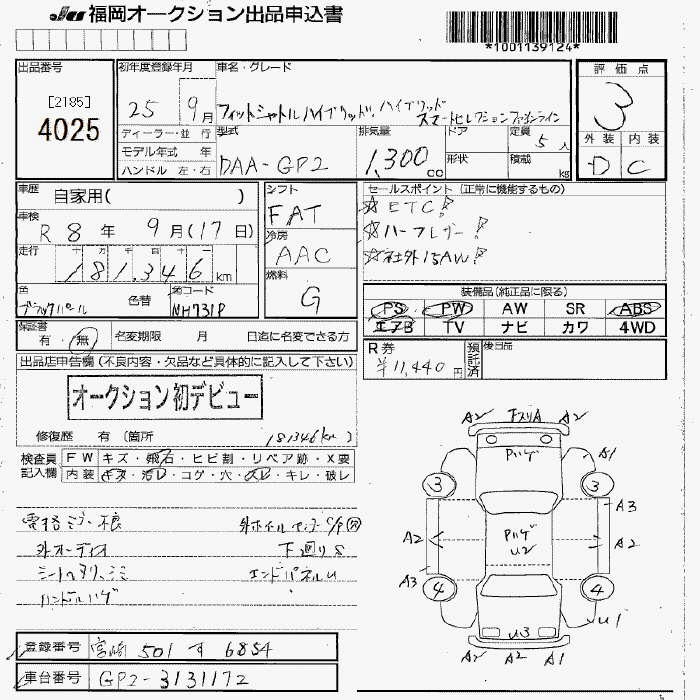 JU 福岡オークション出品申込書
*1001139124*
出品番号 初年度登録年月 車名・グレード 評価点
[2185]
4025
25 9月 フィットシャトルハイブリッド,ハイブリッド
スマートセレクションファインライン
3
ディーラー・並行 型式 排気量 ドア 定員 5人 外装 内装
モデル年式 年 DAA-GP2 1,300cc 形状 積載 D C
ハンドル 左・右 kg
車歴 自家用( ) シフト セールスポイント (正常に機能するもの)
FAT ☆ETC!
車検 R8年 9月(17日) 冷房 ☆ハーフレザー!
走行 十 万 千 百 十 AAC ☆社外15AW!
181,346km 燃料
色 色替 色コード G 装備品(純正品に限る)
ブラックパール NH731P PS PW AW SR ABS
エアB TV ナビ カワ 4WD
保証書 有・無 名変期限 月 日迄に名変できる方 R券 預託済 後日品
¥11,440円
出品店申告欄(不良内容・欠品など具体的に記入して下さい)
オークション初デビュー
修復歴 有 (箇所 181346km)
検査員記入欄 FW キズ・飛石・ヒビ割・リペア跡・X要
内装 キズ・汚レ・コゲ・穴・スレ・キレ・破レ
外オーディオ 下廻りS
シートヘタリ、シミ エンドパネルU
ハンドルハゲ
A2 A2
ハゲ A1
3 3
A3
A2 ハゲ A2
U2
A3
4 4
U3 U1
A2 A2 A1
登録番号 宮崎 501 す 6854
車台番号 GP2-3131172